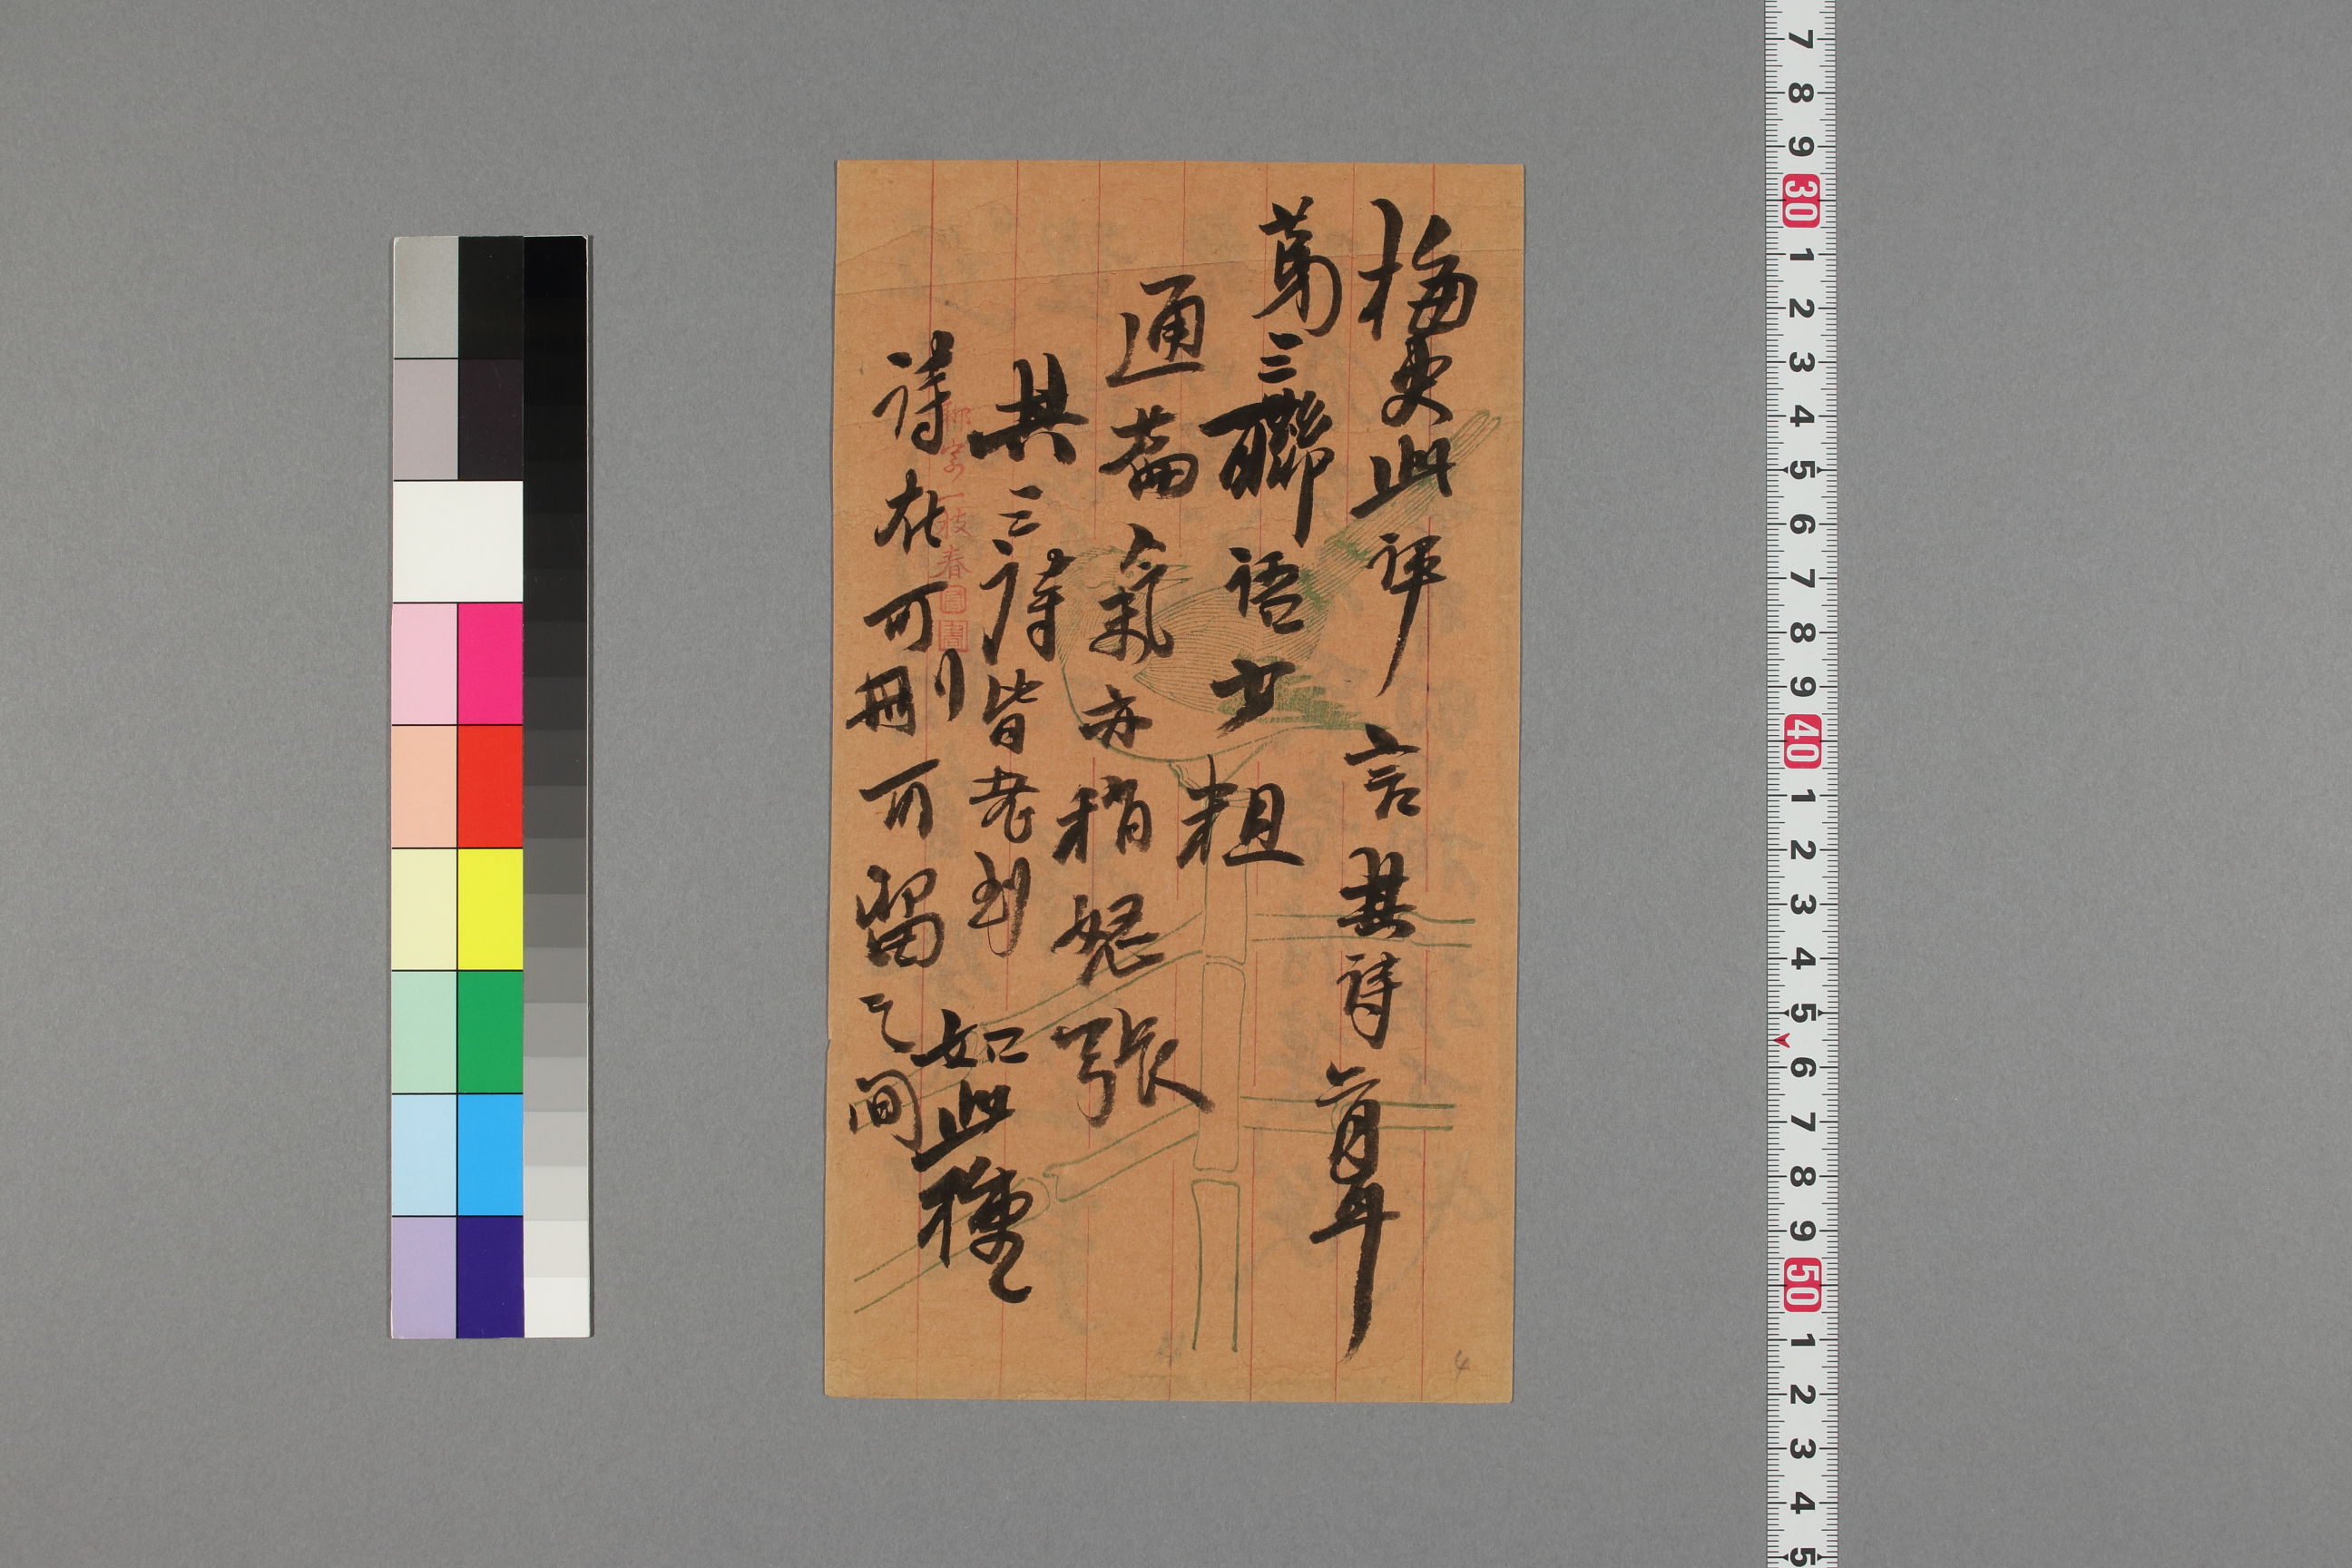 梅史此評言其詩耳
第三聯語少粗
通篇氣亦稍怒張
其三詩皆老到如此種
詩在可刪可留之間
聊寄一枝春
4
7 8 9 30 1 2 3 4 5 6 7 8 9 40 1 2 3 4 5 6 7 8 9 50 1 2 3 4 5